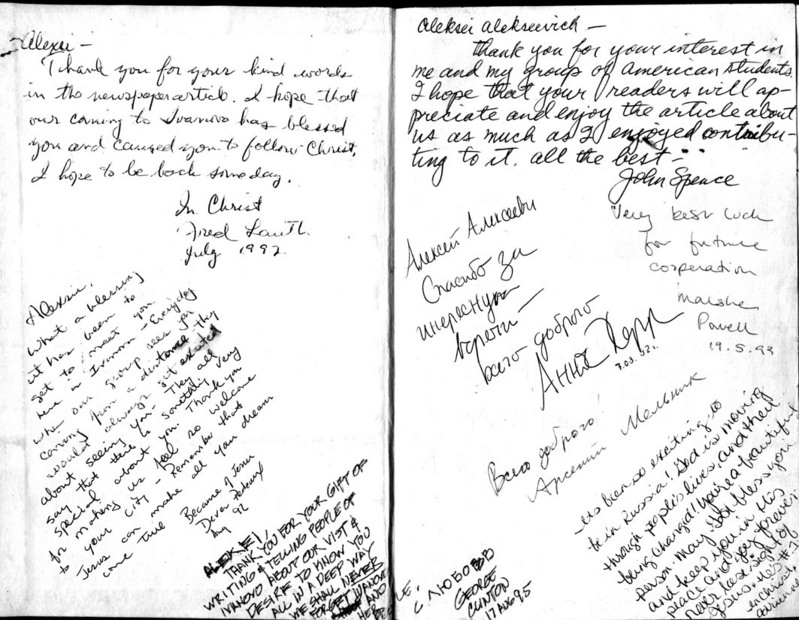 Alexei —
Thank you for your kind words
in the newspaper article. I hope that
our coming to Ivanovo has blessed
you and caused you to follow Christ.
I hope to be back someday.
In Christ
Fred
July 1992
Alexei,
What a blessing
it has been to
get to meet you
here in Ivanovo - Everyday
when our group sees you
coming from a distance they
would always get excited
about seeing you - They all
say that there is something very
special about you. Thank you
for making us feel so welcome
to your city - Remember that
Jesus can make all your dreams
come true
Because of Jesus
92
ALEKSEI,
THANK YOU FOR YOUR GIFT OF
WRITING & TELLING PEOPLE OF
IVANOVO ABOUT OUR VISIT &
DESIRE TO KNOW YOU
ALL IN A DEEP WAY
WE SHALL NEVER
FORGET IVANOVO
AND
Aleksei Alekseevich —
Thank you for your interest in
me and my group of American students.
I hope that your readers will ap-
preciate and enjoy the article about
us as much as I enjoyed contribu-
ting to it. all the best —
John Spence
Very best luck
for future
cooperation
Powell
19.5.93
Алексей Алексееви
Спасибо за
интересную
встречи —
всего доброго
Анна
Всего доброго!
Арсений Мельник
С ЛЮБОВЬЮ
GEORGE
CLINTON
17 AUG 95
It's been so exciting to
be in Russia! God is moving
through people's lives, and they're
being changed! You're a beautiful
person may God bless you
and keep you in this
place and may you never
never lose sight of
Jesus